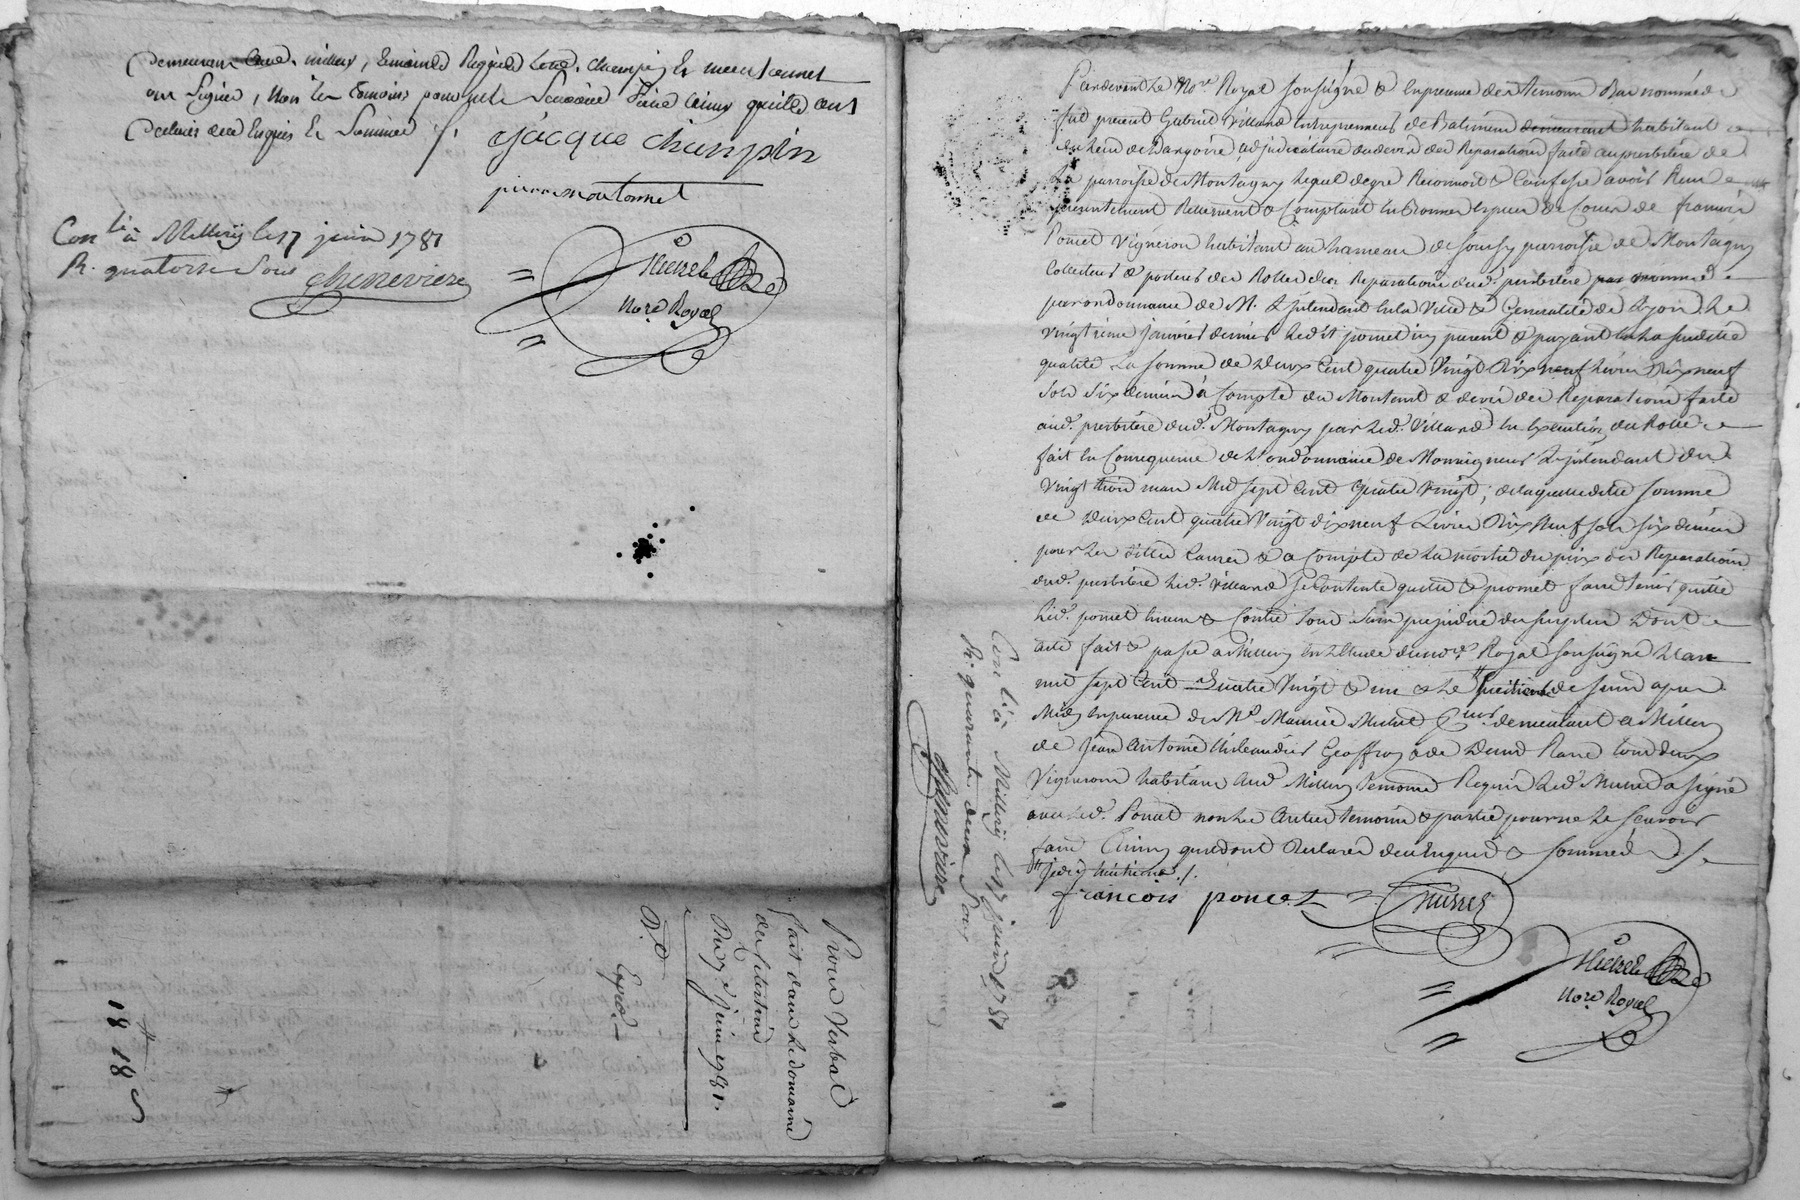 demeurant aud. millery, temoins Requis led. champin et moutonnet
ont Signés, Non les temoins pour ne le Scavoir faire ainsy quils ont
declaré de ce Enquis et Sommés ./.
jacque champin
pierre moutonnet
Con.lé à Millery le 17 juin 1781
R. quatorze Sous
Chenevière
Not.re Royal
Procès Verbal
fait dans le domaine
Du 7 juin 1781.
Expé.
18 18 s
Pardevant Le No.re Royal soussigné & En presence des temoins Bas nommés
fut present Gabriel Villand Entrepreneur de Batiment demeurant habitant
du lieu de Dargoire, adjudicataire du devis des Reparations faites au presbitère de
La parroisse de Montagny Lequel de gré Reconnoit & Confesse avoir Reçu
presentement Réellement & Comptant En Bonnes Espèces de Cours de françois
Poncet Vigneron habitant au hameau de Sourzy parroisse de Montagny
Collecteur & porteur des Rolles des Reparations dud. presbitère par nommé
par ordonnance de M. L'Intendant En la Ville & Generalité de Lyon Le
Vingt sixieme Janvier dernier Ledit poncet icy present & payant En la susdite
qualité La somme de Deux Cent quatre Vingt Dix neuf Livres Dix neuf
Sols Six deniers à Compte du Montant & devis des Reparations faites
aud. presbitère dud. Montagny par led. Villand En Execution du Rolle
fait En Consequence de L'ordonnance de Monseigneur L'Intendant du
Vingt trois mars Mil sept Cent Quatre Vingt; de laquelle dite somme
de Deux Cent quatre Vingt dix neuf Livres Dix Neuf sols six deniers
pour Les dittes Causes & a Compte de La moitié du prix des Reparations
dud. presbitère Led. Villand se Contente quitte & promet faire tenir quitte
Led. poncet Envers & Contre tous Sans prejudice du surplus Dont
acte fait & passé a Millery En L'Etude du no.re Royal soussigné L'an
mil sept Cent Quatre Vingt & un & Le huitieme de Juin après
Midy En presence de M.e Maurice Musset demeurant a Millery
de Jean Antoine Geoffroy & de Denis Plane tous deux
Vignerons habitans aud. Millery temoins Requis Led. Musset a signé
avec led. Poncet non Les Autres temoins & partie pour ne Le scavoir
faire Ainsy quils ont Declaré de ce Enquis & Sommés ./.
je dis huitieme ./.
françois poncet
Musset
Not.re Royal
Con.lé à Millery le 17 juin 1781
R. quarante deux Sous
Chenevière